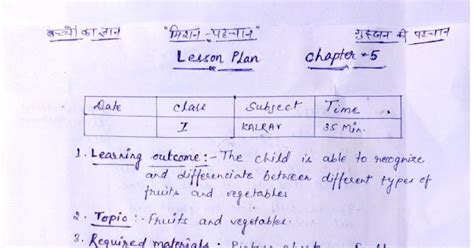 बच्चों का ज्ञान "मिशन-पहचान" गुरुजन की पहचान
Lesson Plan Chapter-5
Date Class Subject Time
I KALRAV 35 Min.
1. Learning outcome:- The child is able to recognize
and differenciate between different types of
fruits and vegetables
2. Topic:- Fruits and vegetables.
3. Required materials:-